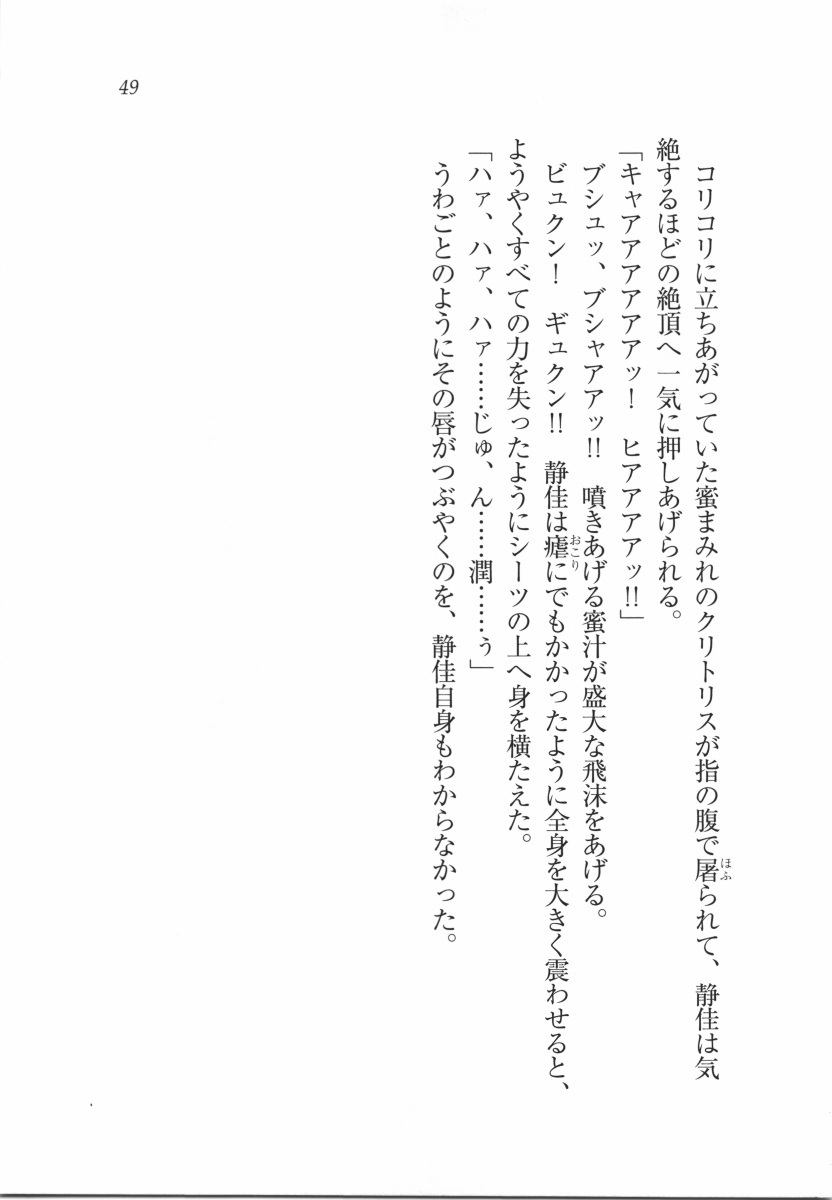 49
コリコリに立ちあがっていた蜜まみれのクリトリスが指の腹で屠られて、静佳は気
絶するほどの絶頂へ一気に押しあげられる。
「キャアアアアアアッ!　ヒアアアアッ!!」
ブシュッ、ブシャアアッ!!　噴きあげる蜜汁が盛大な飛沫をあげる。
ビュクン!　ギュクン!!　静佳は瘧にでもかかったように全身を大きく震わせると、
ようやくすべての力を失ったようにシーツの上へ身を横たえた。
「ハァ、ハァ、ハァ……じゅ、ん……潤……ぅ」
うわごとのようにその唇がつぶやくのを、静佳自身もわからなかった。
ほふ
おこり